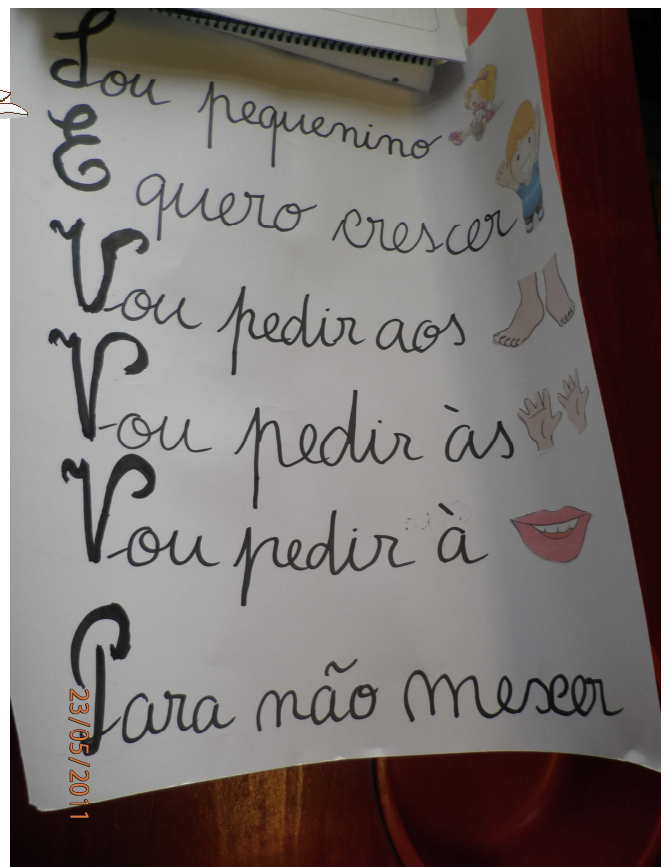 Sou pequenino
E quero crescer
Vou pedir aos
Vou pedir às
Vou pedir à
Para não mescer
23/05/2011